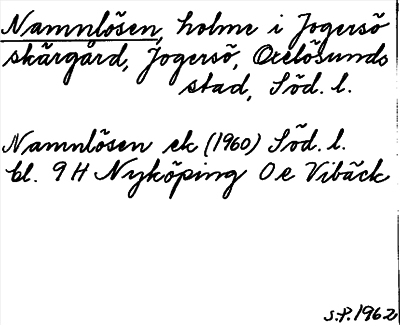 Namnlösen, holme i Jogersö
skärgård, Jogersö, Oxelösunds
stad, Söd. l.
Namnlösen ek (1960) Söd. l.
bl. 9 H Nyköping Oe Vibäck
S.P. 1962